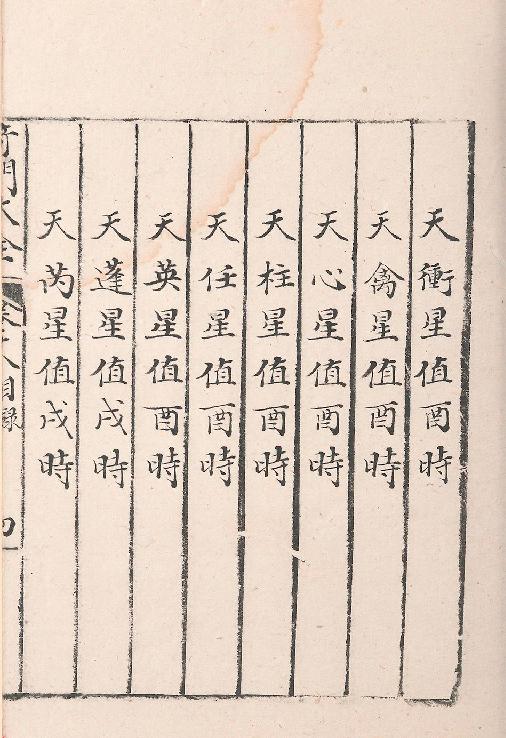 天衝星值酉時
天禽星值酉時
天心星值酉時
天柱星值酉時
天任星值酉時
天英星值酉時
天蓬星值戌時
天芮星值戌時
奇門大全
目錄